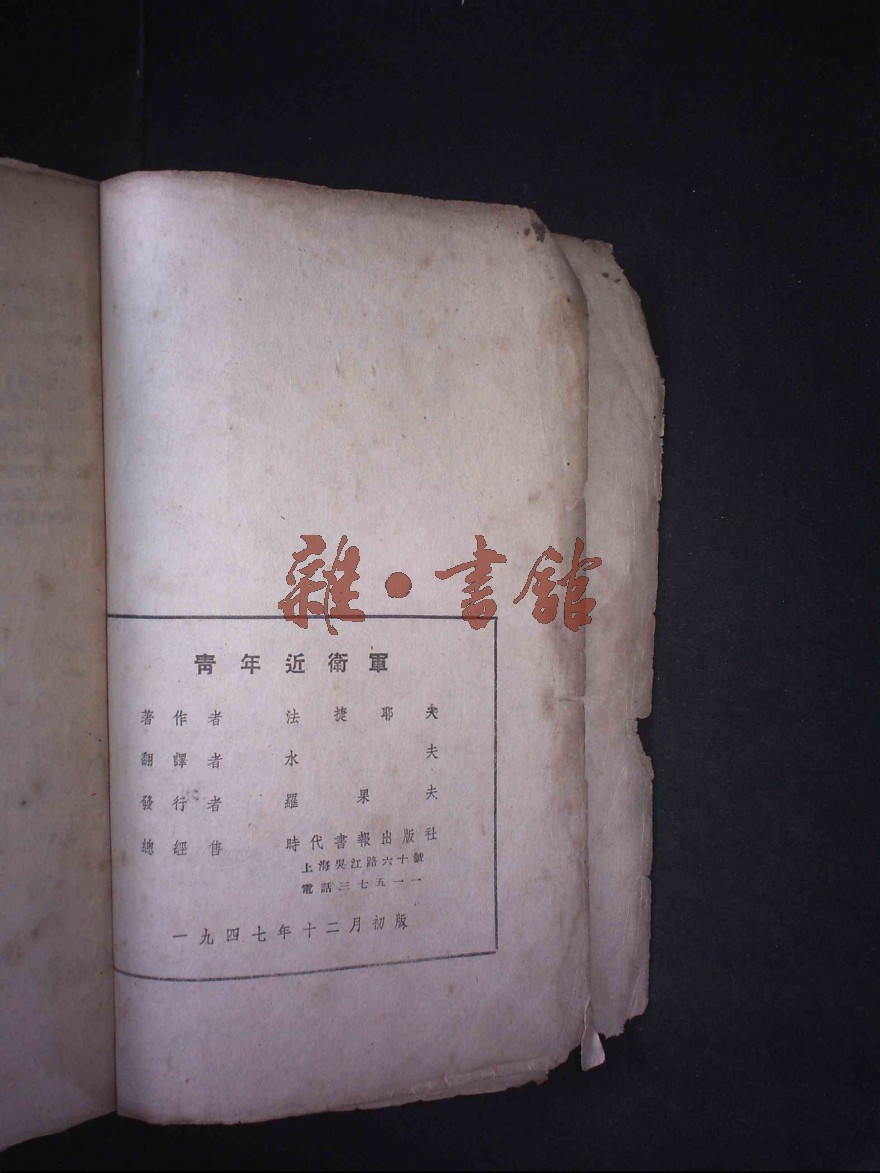 雜·書館
青年近衛軍
著作者 法捷耶夫
翻譯者 水夫
發行者 羅果夫
總經售 時代書報出版社
上海吳江路六十號
電話三七五一一
一九四七年十二月初版